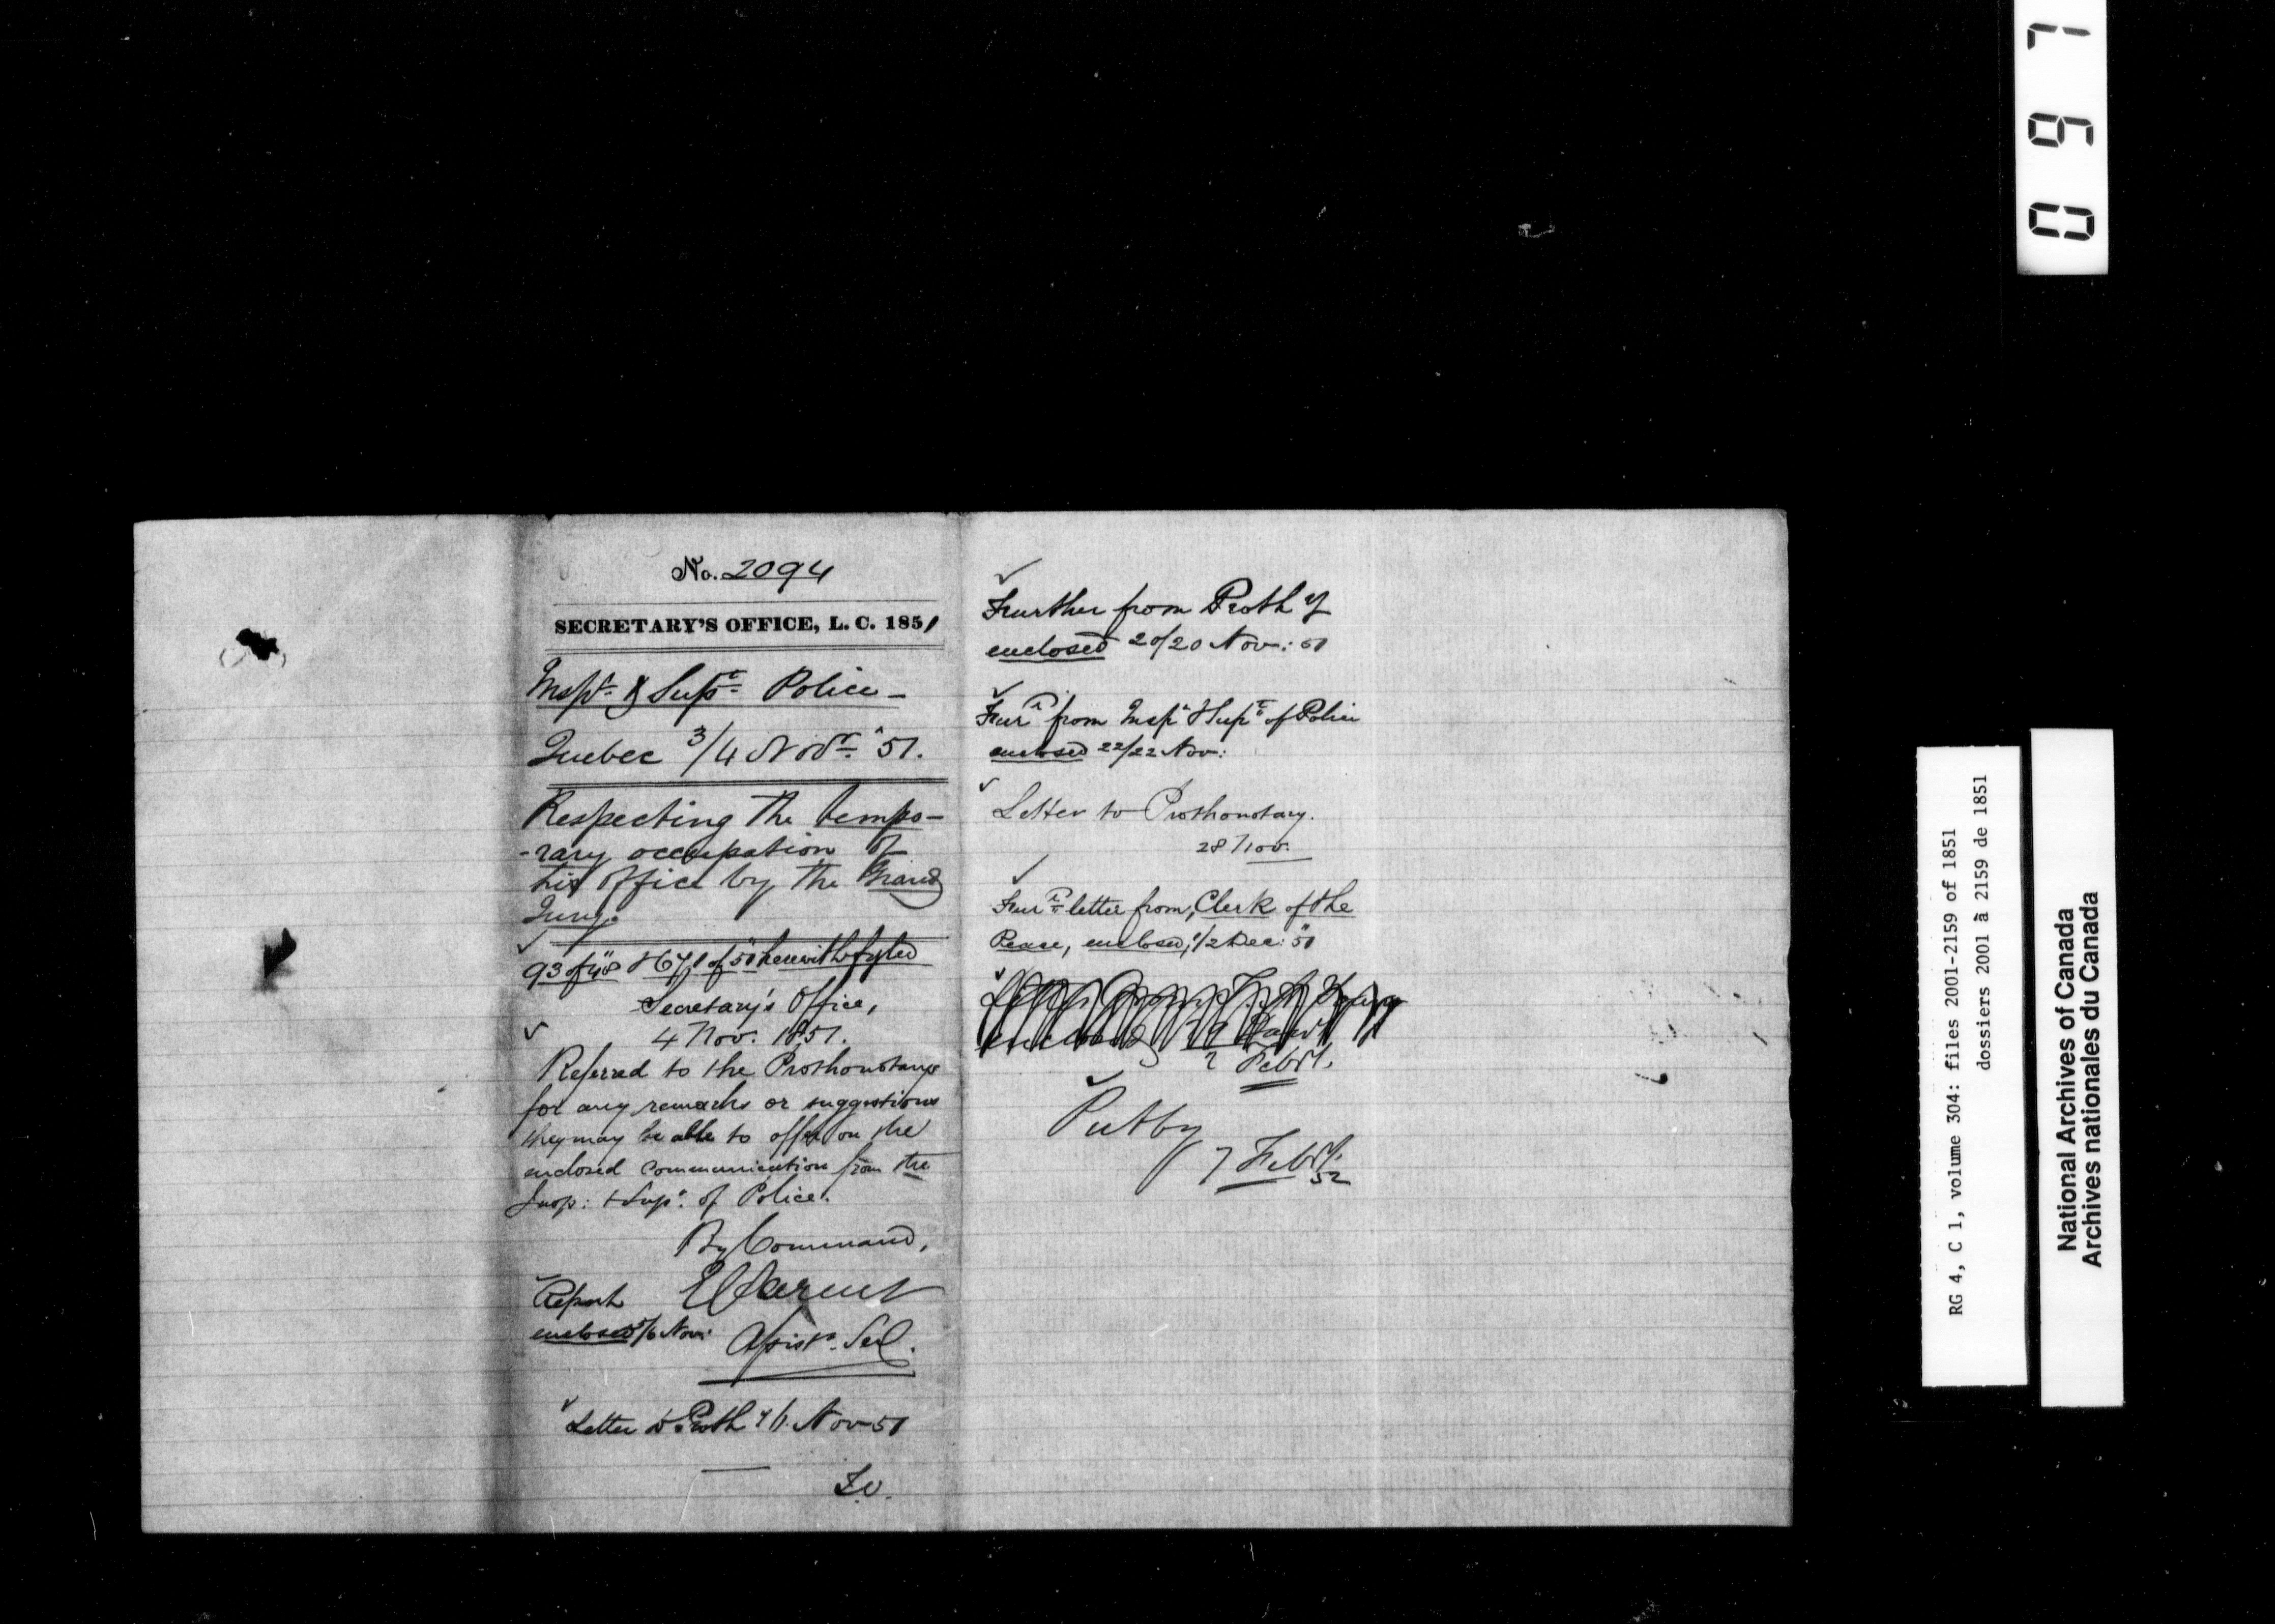 No. 2094
SECRETARY'S OFFICE, L. C. 1851
Insp.r & Sup.t Police -
Quebec 3/4 Nov.r "51.
Respecting the tempo-
-rary occupation of
his office by the Grand
Jury.
93 of "48 & 671 of "50 herewith fyled
Secretary's Office,
4 Nov. 1851.
Referred to the Prothonotary
for any remarks or suggestions
they may be able to offer on the
enclosed communication from the
Insp: & Sup.t of Police.
By Command,
E Parent
Assist. Sec.
Report
enclosed /6 Nov:
Letter to Proth y 11. Nov 51
Further from Proth y
enclosed 20/20 Nov: 51
Fur r from Insp r & Sup t of Police
enclosed 22/22 Nov:
Letter to Prothonotary.
28 Nov.
Fur r letter from, Clerk of the
Peace, enclosed, 1/2 Dec: "51
7 Feb y.
Put by
7 Feb y.
52
0 9 7
RG 4, C 1, volume 304: files 2001-2159 of 1851
dossiers 2001 à 2159 de 1851
National Archives of Canada
Archives nationales du Canada